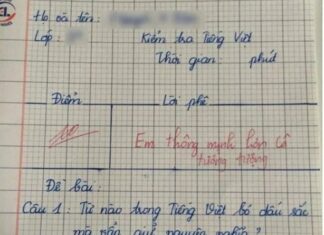 Họ và tên:
Lớp:
Kiểm tra Tiếng Việt
Thời gian: phút
Điểm
Lời phê
10
Em thông minh hơn cô
tưởng tượng
Đề bài:
Câu 1: Từ nào trong Tiếng Việt bỏ dấu sắc
mà vẫn giữ nguyên nghĩa?